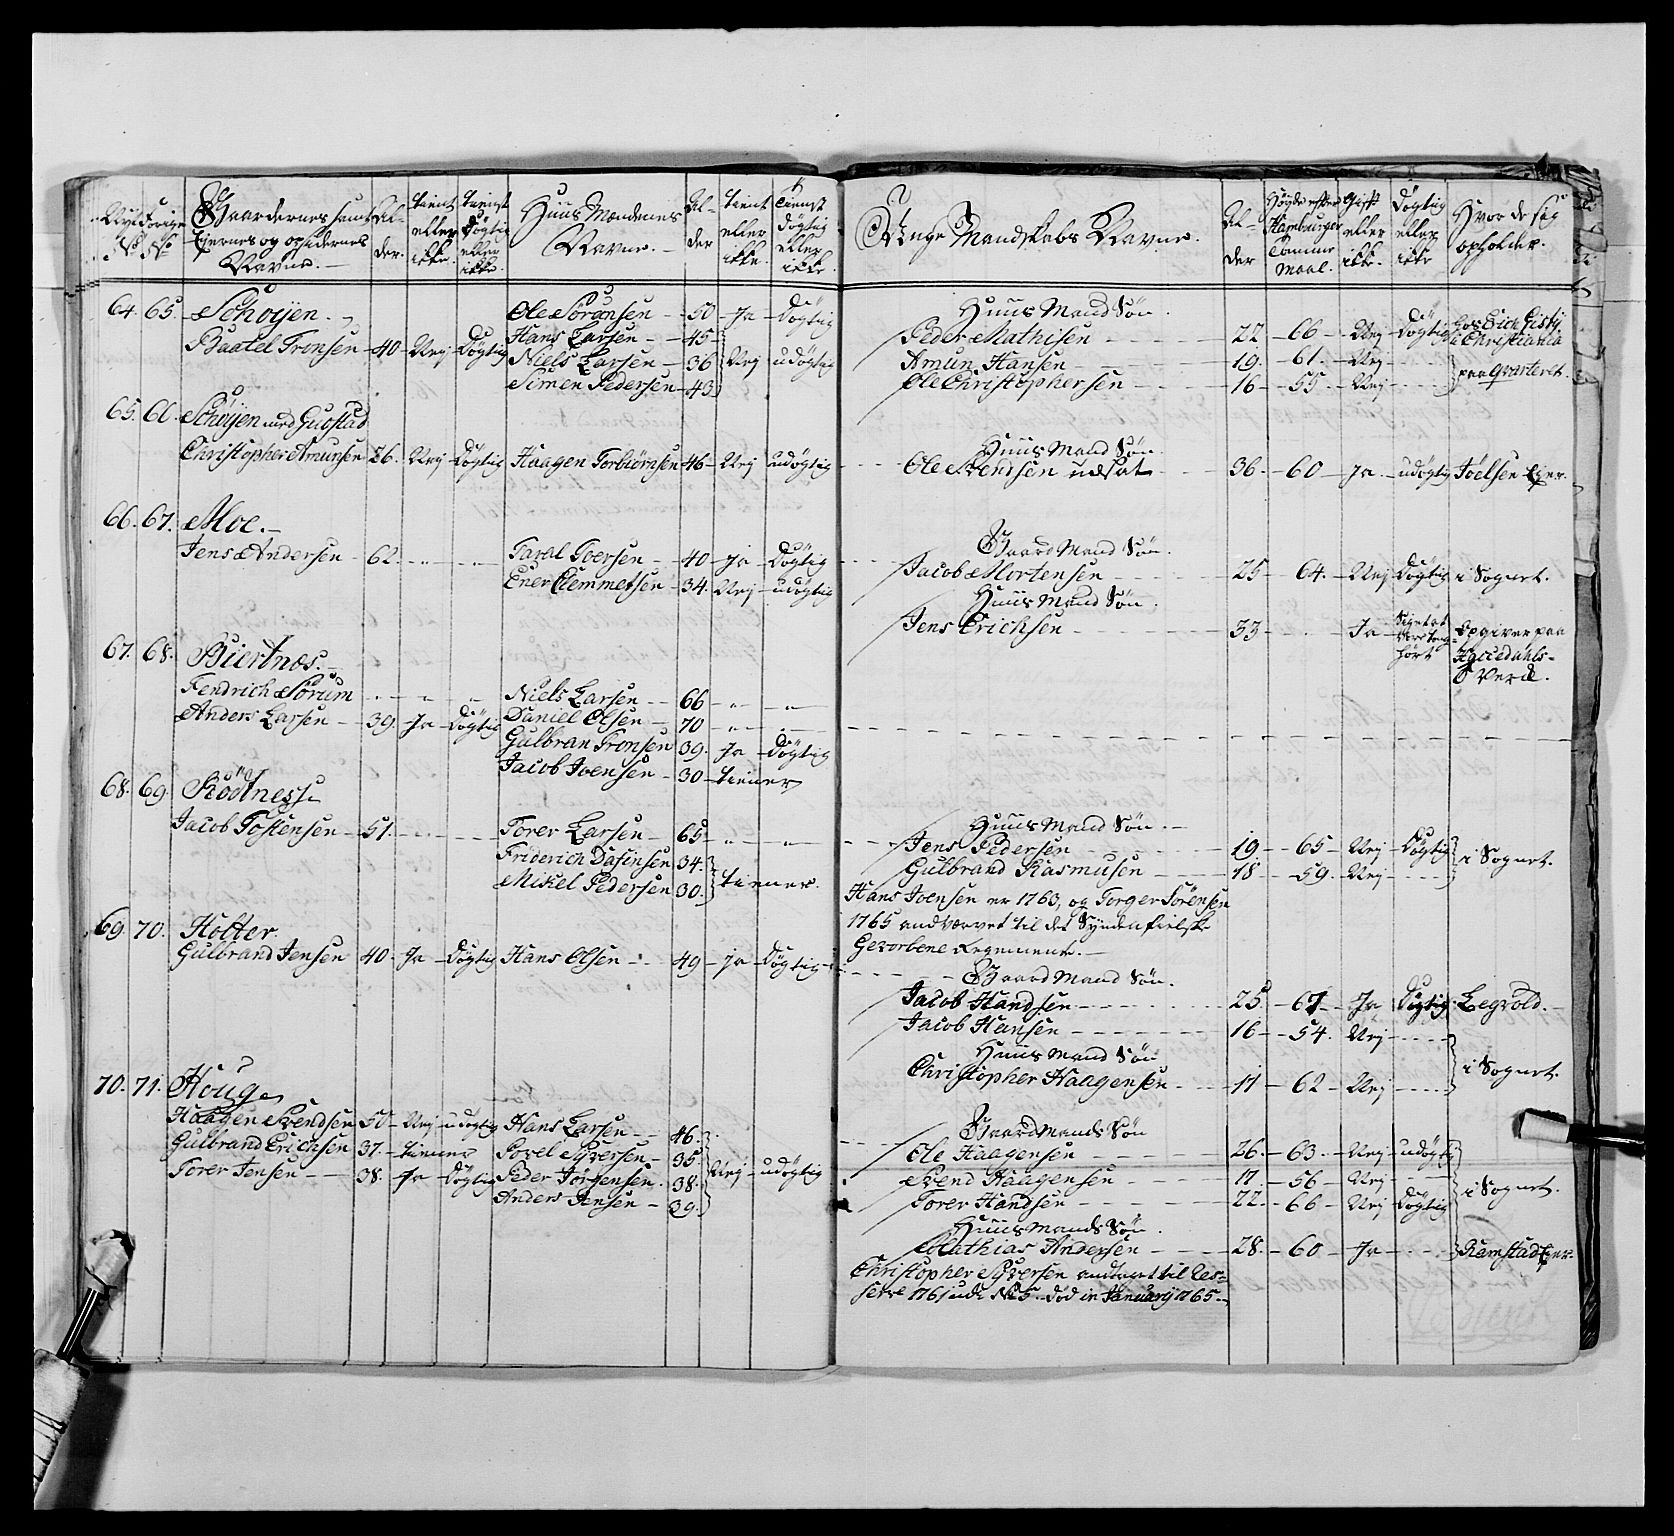 Nye No
Forige No
Gaardernes samt
Ejernes og opsidernes
Navne.
Al-
der.
tient
eller
ikke.
tienst
Døgtig
eller
ikke.
Huus Mændenes
Navne.
Al-
der
tient
eller
ikke.
tienst
døgtig
eller
ikke.
64. 65. Schøyen.
Ole Sørensen 50 Ja Døgtig
Baatel Tronsen 40 Nej Døgtig
Hans Larsen 45
Niels Larsen 36 Nej udøgtig
Simen Pedersen 43
65. 66. Schøyen med Guostad
Christopher Amunsen 26. Nej Døgtig Haagen Torbiørnsen 46 Nej udøgtig
66. 67. Moe.
Jens Andersen 62. Taral Toersen 40 ja Døgtig
Ener Clemmetsen 34. Nej udøgtig
67. 68. Biertnæs.
Fendrich Sørum Niels Larsen 66
Anders Larsen 39. Ja Døgtig Daniel Olsen 70
Gulbran Tronsen 39. Ja Døgtig
Jacob Joensen 30 tiener
68. 69. Rødtness
Jacob Tostensen 51. Torer Larsen 65
Friderich Dasinsen 34.
Mikel Pedersen 30. tiener.
69. 70. Holter
Gulbrand Jensen 40. Ja Døgtig Hans Olsen 49 ja Døgtig
70. 71. Houg
Haagen Svendsen 50 Nej udøgtig Hans Larsen 46.
Gulbrand Erichsen 37. tiener Povel Syversen 35
Torer Jensen 38. Ja Døgtig Peder Jørgensen. 38. Nej udøgtig
Anders Jensen 39.
Unge Mandskabs Navne.
Al-
der
Høyde efter
Hamburger
Tomme
maal.
Gift
eller
ikke.
Døgtig
eller
ikke
Hvor de sig
opholder.
Huus Mand Søn.
Peder Mathisen 22. 66 Nej Døgtig
Christiania
Amun Hansen 19. 61. Nej
Ole Christophersen 16 55. Nej paa qvarteret.
Huus Mand Søn
Ole Svendsen udsat 36. 60 Ja udøgtig Joelsen Ejer.
Gaard Mand Søn.
Jacob Mortensen 25 64. Nej Døgtig i Sognet.
Huus Mand Søn.
Jens Erichsen 33 Ja
Opgiver paa
Værck.
Huus Mand Søn.
Jens Pedersen 19 65 Nej Døgtig
Gulbrand Rasmusen 18 59. Nej i Sognet.
Hans Joensen er 1763, og Torger Sørensen
1765 andværvet til det Syndenfielske
Gevorbene Regemente.
Gaard Mand Søn.
Jacob Handsen 25 67 Ja Døgtig Legvold.
Jacob Hansen 16 54. Nej
Huus Mand Søn
Christopher Haagensen 17 62 Nej i Sognet.
Gaard Mands Søn
Ole Haagensen 26. 63. Nej udøgtig
Svend Haagensen 17 56 Nej
Torer Handsen 22. 66 Nej Døgtig i Sognet.
Huus Mands Søn.
Mathias Andersen 28. 60 Ja Ramstad Ejer
Christopher Syversen andtaget til Res-
serve 1761 ude No 5. død in January 1765.